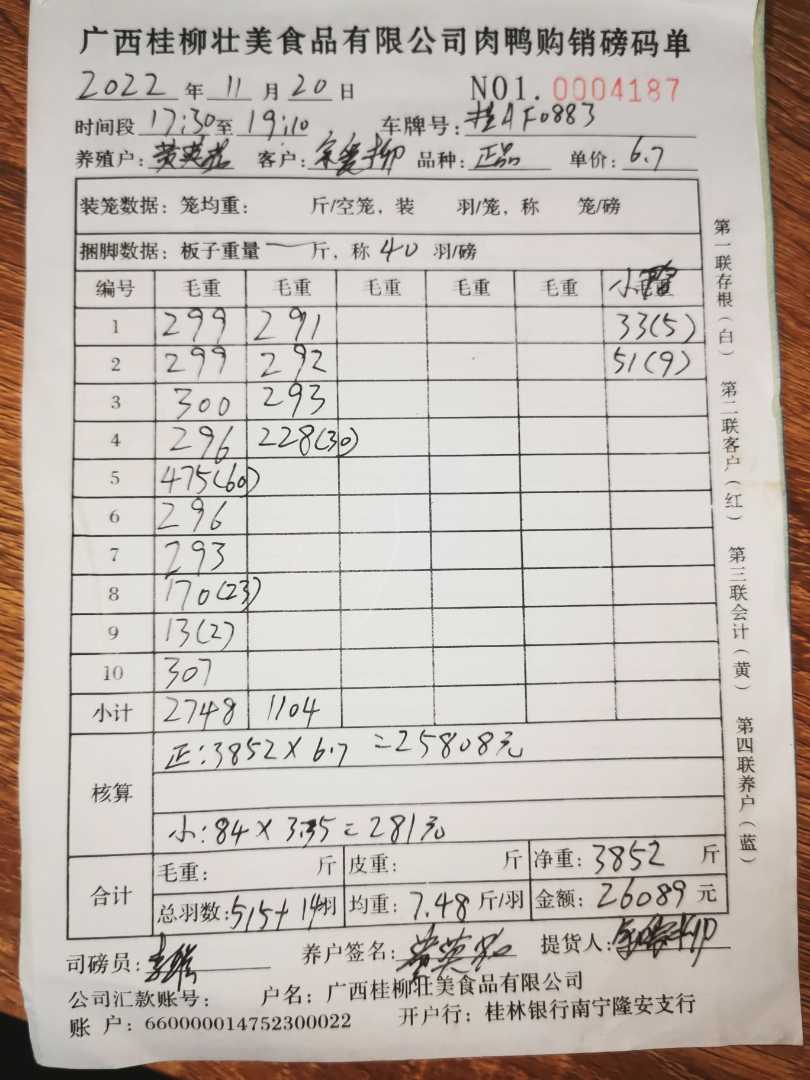 广西桂柳壮美食品有限公司肉鸭购销磅码单
2022 年 11 月 20 日 NO1. 0004187
时间段 17:30 至 19:10 车牌号: 桂AF0883
养殖户: 黄英 客户: 品种: 正品 单价: 6.7
装笼数据: 笼均重: 斤/空笼, 装 羽/笼, 称 笼/磅
捆脚数据: 板子重量 一 斤, 称 40 羽/磅
编号 毛重 毛重 毛重 毛重 毛重 小
1 299 291 33(5)
2 299 292 51(9)
3 300 293
4 296 228(30)
5 475(60)
6 296
7 293
8 170(23)
9 13(2)
10 307
小计 2748 1104
正:3852×6.7=25808元
核算
小:84×3.35=281元
合计 毛重: 斤 皮重: 斤 净重: 3852 斤
总羽数:515+14羽 均重: 7.48 斤/羽 金额: 26089 元
司磅员: 养户签名: 黄英 提货人:
公司汇款账号: 户名: 广西桂柳壮美食品有限公司
账 户: 660000014752300022 开户行: 桂林银行南宁隆安支行
第一联存根(白) 第二联客户(红) 第三联会计(黄) 第四联养户(蓝)